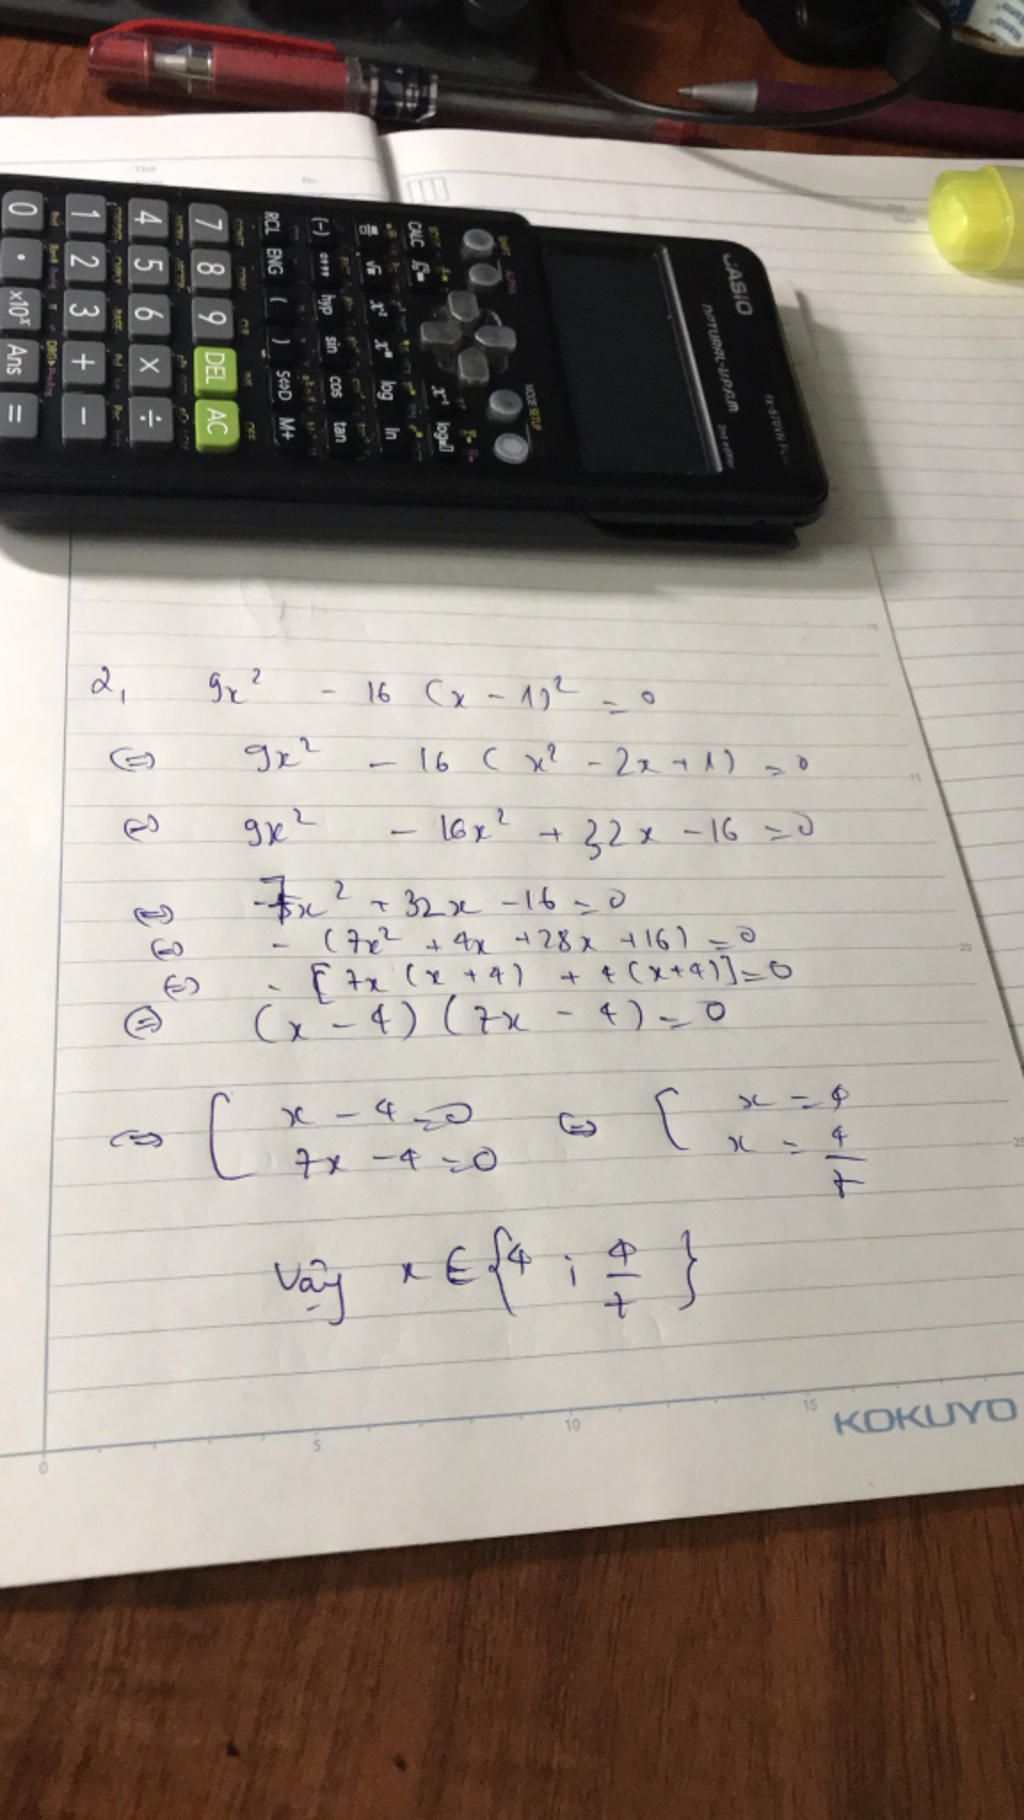 CASIO
NATURAL-V.P.A.M.
2nd edition
MODE SETUP
CALC
x²
log
ln
(-)
hyp
sin
cos
tan
RCL
ENG
(
)
S⇔D
M+
7
8
9
DEL
AC
4
5
6
×
÷
1
2
3
+
−
0
.
×10ˣ
Ans
=
2, 9x² - 16 (x - 1)² = 0
⇔ 9x² - 16 (x² - 2x + 1) = 0
⇔ 9x² - 16x² + 32x - 16 = 0
⇔ -7x² + 32x - 16 = 0
⇔ - (7x² + 4x + 28x + 16) = 0
⇔ - [7x (x + 4) + 4 (x+4)] = 0
⇔ (x - 4) (7x - 4) = 0
⇔ [ x - 4 = 0 ⇔ [ x = 4
7x - 4 = 0 x = 4/7
Vậy x ∈ {4 ; 4/7}
0 5 10 15
KOKUYO